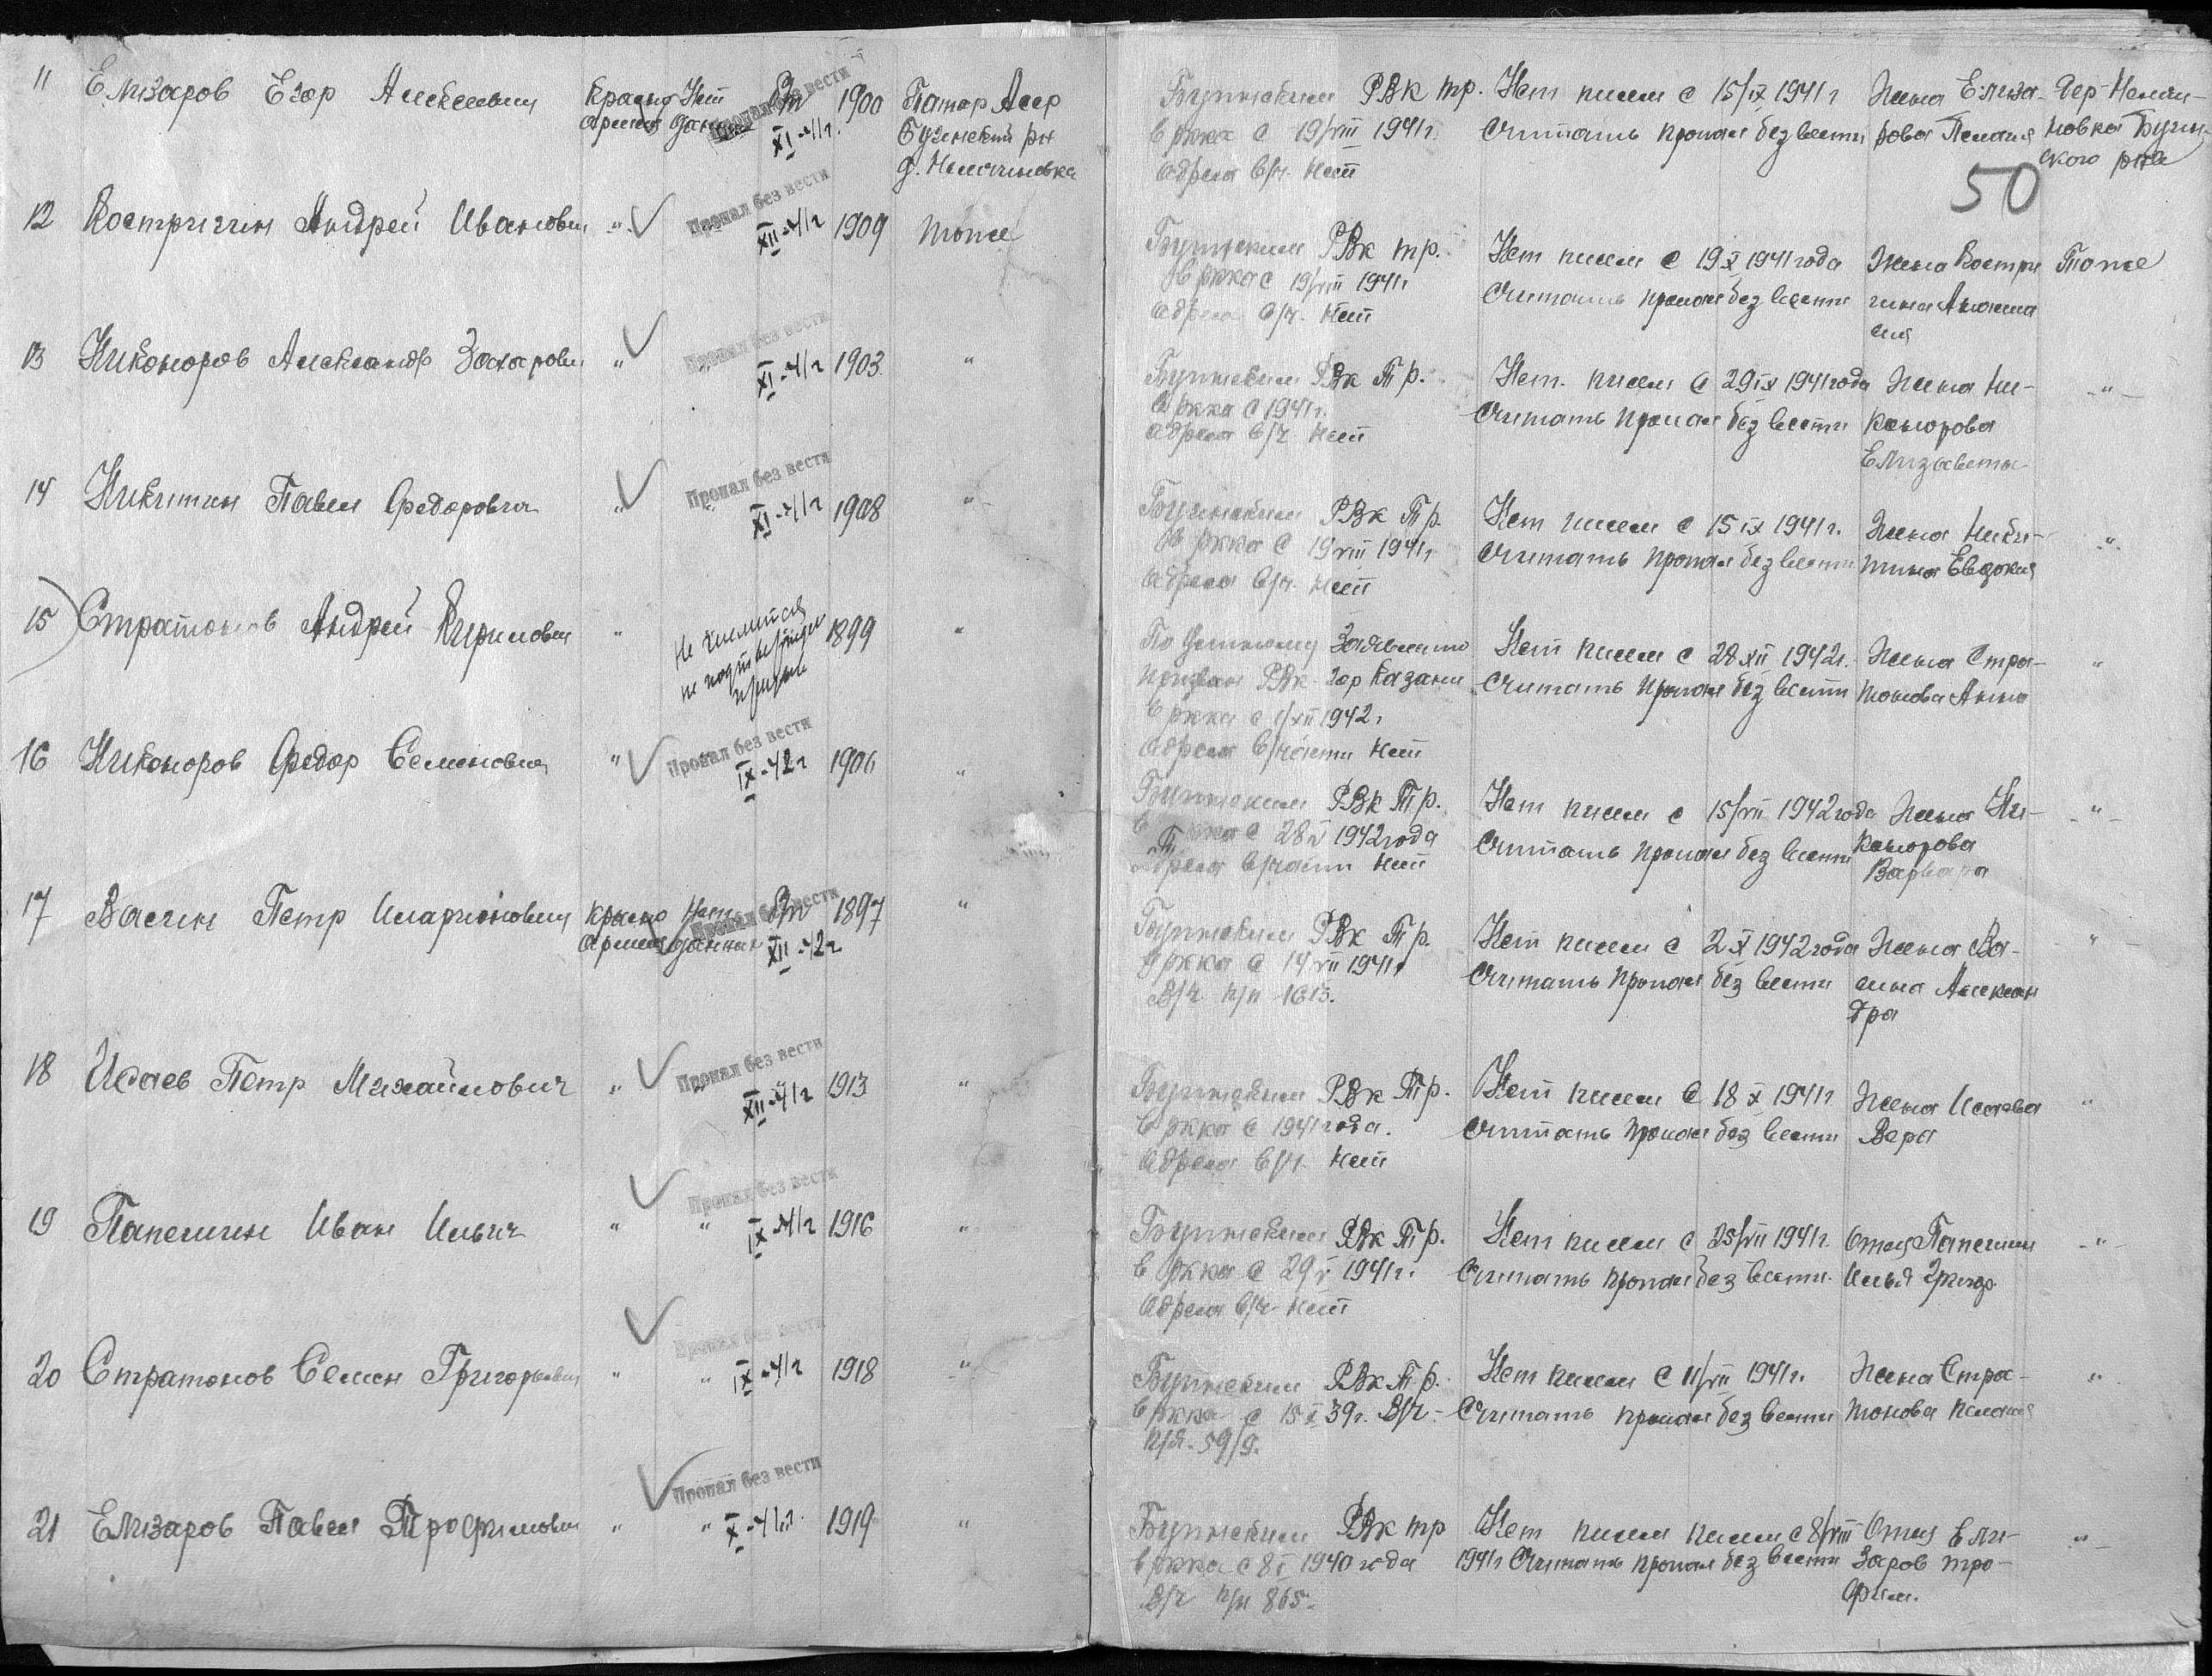 11 Елизаров Егор Алексеевич Красно Нет Вт 1900 Татар Асср Буинским РВК тр. Нет писем с 15/IX 1941г Жена Елиза- Дер-
армеец данных Пропал без вести XI-41г. Буинский рн в ркка с 19/VIII 1941г. Считать пропал без вести рова Пелагия Буин-
адреса в/ч. Нет ского рна
50
12 Костригин Андрей Иванович -"- Пропал без вести XII-41г 1909 тоже Буинским РВК тр. Нет писем с 19 X 1941 года Жена Костри Тоже
в ркка с 19/VIII 1941г Считать пропал без вести гина
адреса в/ч. Нет
13 Никоноров Александр Захарович " Пропал без вести XI-41г 1903 " Буинским РВК Тр. Нет. писем с 29 IX 1941 года Жена Ни- -"-
в ркка с 1941г. Считать пропал без вести конорова
адреса в/ч Нет Елизавета
14 Никитин Павел Федорович " Пропал без вести " XI-41г 1908 " Буинским РВК Тр. Нет писем с 15 IX 1941г. Жена Ники- -"-
в ркка с 19 VIII 1941г Считать пропал без вести тина Евдокия
адреса в/ч. Нет
15 Стратонов Андрей Кирилович " Не числится 1899 " По Заявлению Нет писем с 28 XII 1942г. Жена Стра- "
призван РВК гор Казани Считать пропал без вести тонова Анна
в ркка с 1/XII 1942г
адреса в/части Нет
16 Никоноров Федор Семенович " Пропал без вести IX-42г 1906 " Буинским РВК Тр. Нет писем с 15/VII 1942 года Жена Ни- -"-
1942 года Считать пропал без вести конорова
адреса в/части Нет Варвара
17 Васин Петр Иларионович Красно Нет Вт 1897 " Буинским РВК Тр. Нет писем с 2 X 1942 года Жена Ва- "
армеец данных Пропал без вести XII-42г в ркка с 14 VII 1941г Считать пропал без вести сина Алексан
В/ч п/п 1613. дра
18 Исаев Петр Михайлович " Пропал без вести " XII-41г 1913 " Буинским РВК Тр. Нет писем с 18 X 1941г Жена Исаева "
в ркка с 1941 года. Считать пропал без вести Вера
адреса в/ч. Нет
19 Папешин Иван Ильич " Пропал без вести " IX-41г 1916 " Буинским РВК Тр. Нет писем с 25/VII 1941г. Отец Папешин -"-
в ркка с 29 V 1941г. Считать пропал без вести. Илья Григор
адреса в/ч Нет
20 Стратонов Семен Григорьевич " Пропал без вести " IX-41г 1918 -"- Буинским РВК Тр. Нет писем с 11/VII 1941г. Жена Стра- "
в ркка с 15 X 39г. В/ч- Считать пропал без вести тонова Пелагия
п/я. 59/9.
21 Елизаров Павел Трофимович " Пропал без вести " X-41г. 1919 " Буинским РВК тр Нет писем писем с 8/VIII Отец Ели- -"-
в ркка с 1940 года 1941г Считать пропал без вести заров Тро-
В/ч п/я 865. фим.